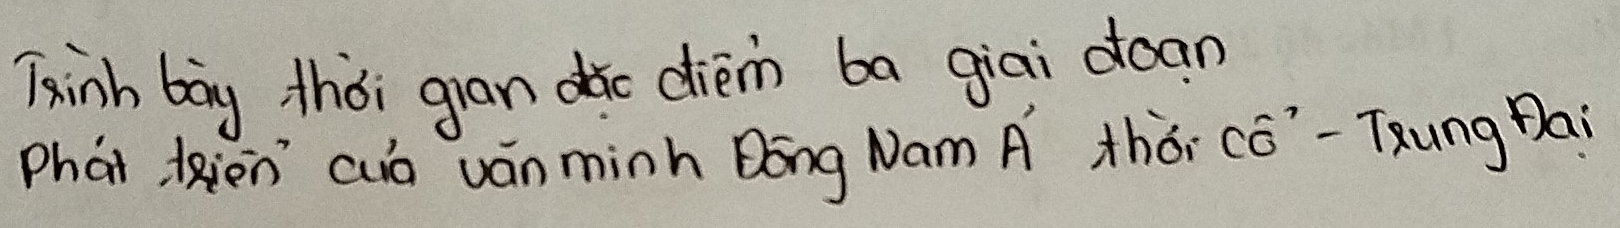 Trình bày thời gian đặc điểm ba giai đoạn
Phát triển của văn minh Đông Nam Á thời cổ - Trung Đại